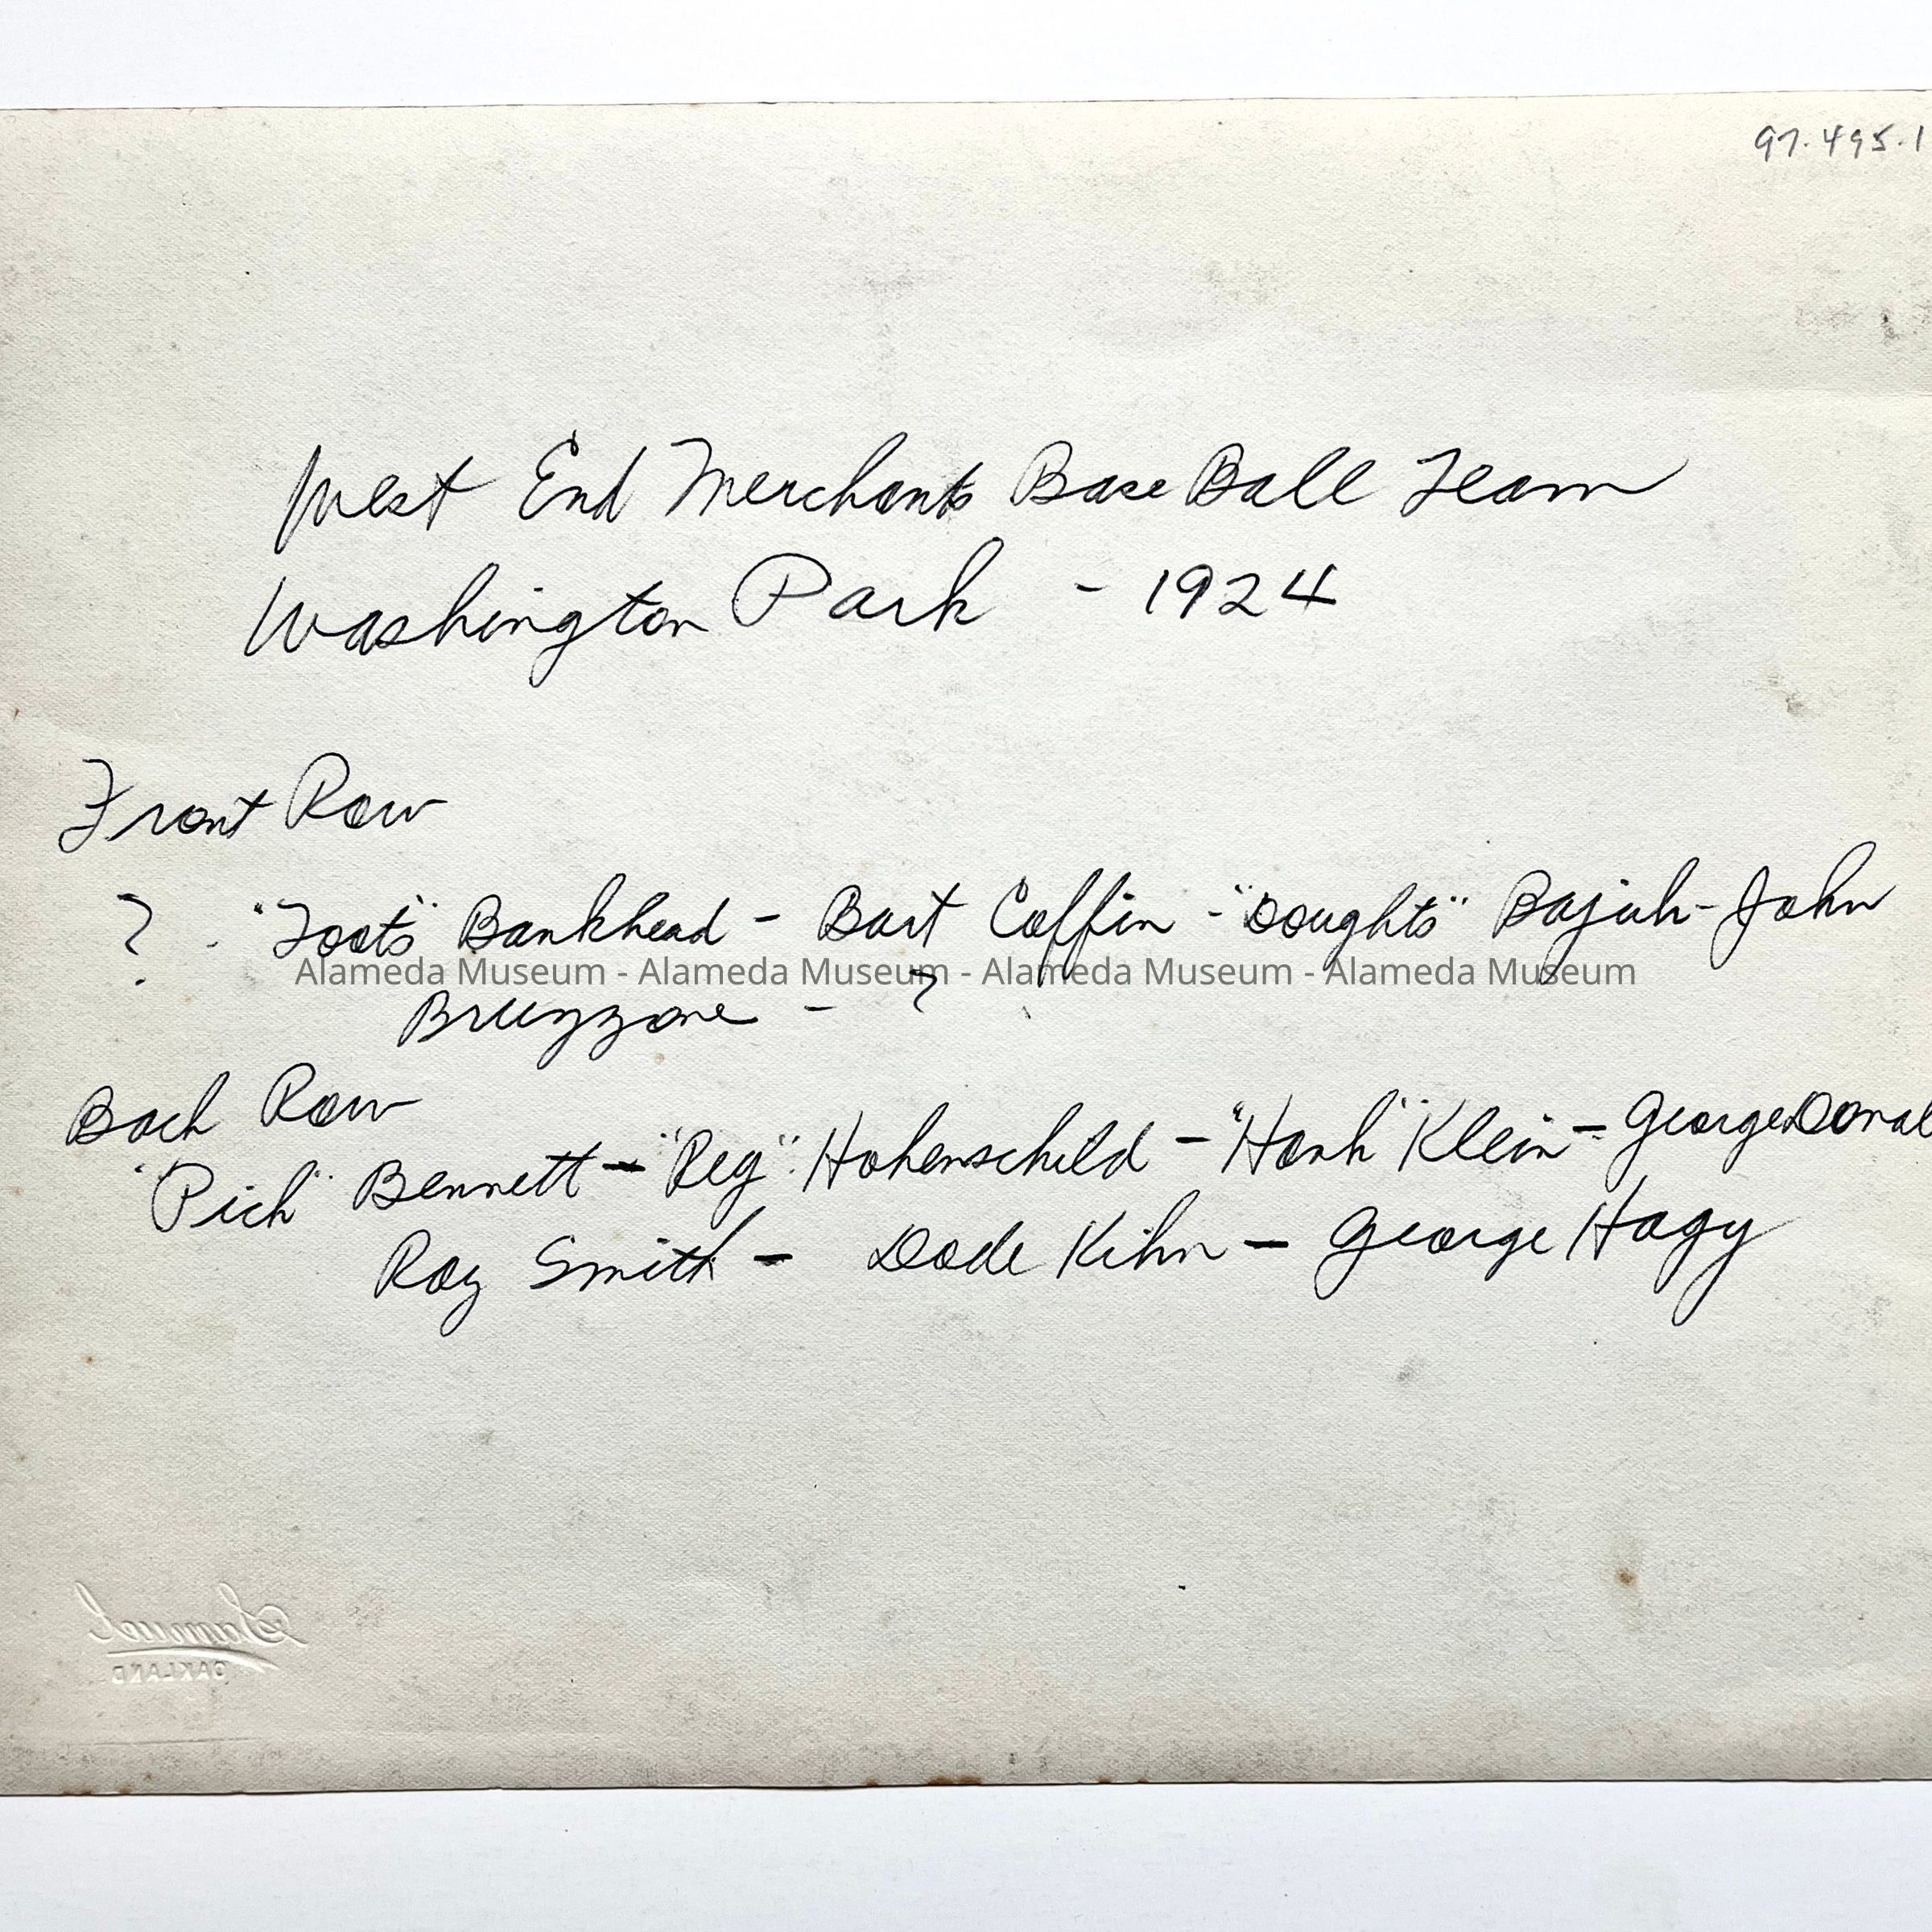 97.495.1
West End Merchants Base Ball Team
Washington Park - 1924
Front Row
? - "Toots" Bankhead - Bart Coffin - "Doughts" Bajuk - John
Alameda Museum - Alameda Museum - Alameda Museum - Alameda Museum
Bruzzone - ?
Back Row
"Pick" Bennett - "Reg" Hohenschild - "Hank" Klein - George Donal
Roy Smith - Dode Kihn - George Hagy
Samuels
OAKLAND